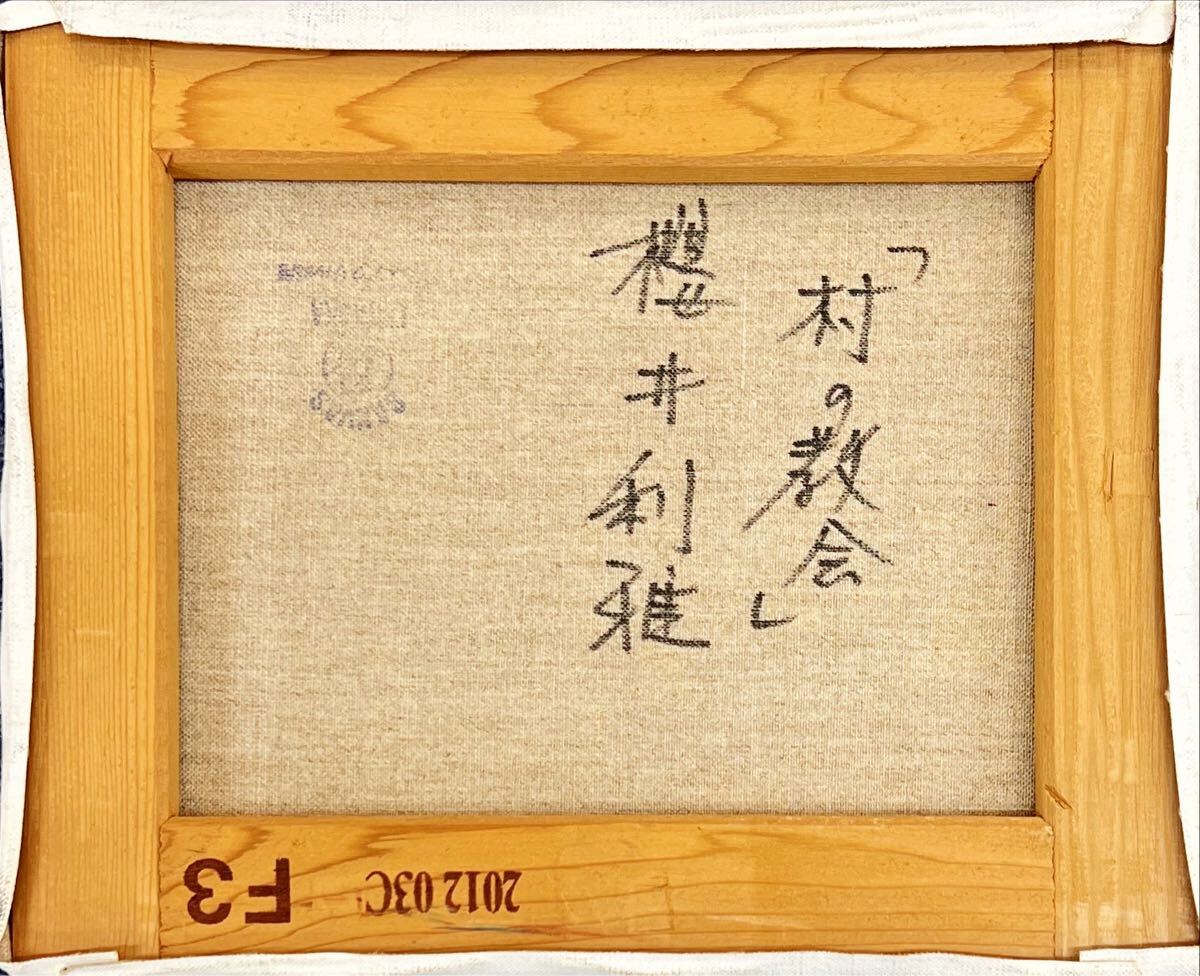 「村の教会」
櫻井利雅
F3
2012 03C